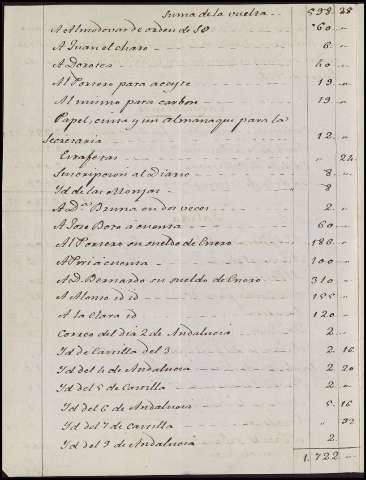 Suma de la vuelta 598 28
A Almodovar de orden de SO 60 "
A Juan el charo 6 "
A Dorotea 40 "
Al Portero para aceyte 19 "
Al mismo para carbon 19 "
Papel, y un almanaque para la
Secretaria 12 "
Estafetas " 24
Suscripcion al Diario 8 "
Yd de las Monjas 8
A Dª Bruna en dos veces 2 "
A Jose Boro a cuenta 60
Al Portero su sueldo de Enero 186
A a cuenta 100 "
A D. Bernardo su sueldo de Enero 310 "
A Alonso id id "
A la Clara id 120 "
Correo del dia 2 de Andalucia 2
Yd de Castilla del 3 2 16
Yd del 4 de Andalucia 2 20
Yd del 5 de Castilla 2 "
Yd del 6 de Andalucia 5 16
Yd del 7 de Castilla " 32
Yd del 9 de Andalucia 2
1.722 "